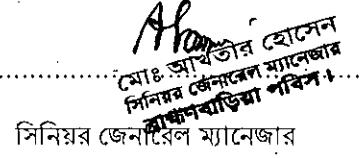 মোঃ আখতার হোসেন
সিনিয়র জেনারেল ম্যানেজার
ব্রাহ্মণবাড়িয়া পবিস।
সিনিয়র জেনারেল ম্যানেজার